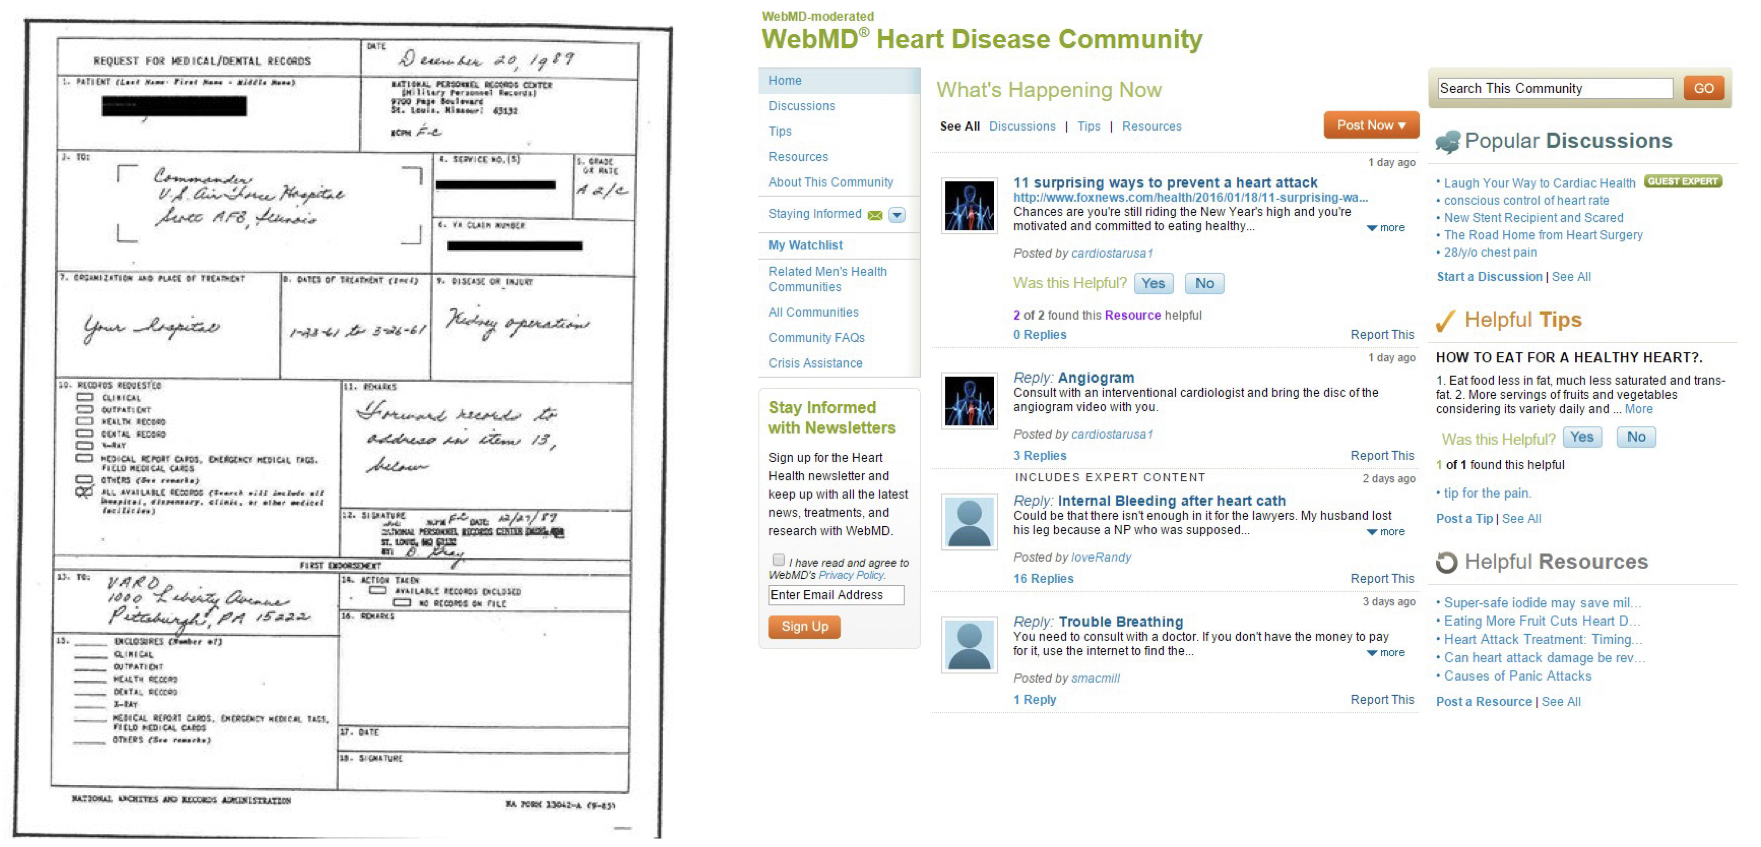 REQUEST FOR MEDICAL/DENTAL RECORDS
DATE
December 20, 1989
1. PATIENT (Last Name- First Name - Middle Name)
NATIONAL PERSONNEL RECORDS CENTER
(Military Personnel Records)
9700 Page Boulevard
St. Louis, Missouri 63132
NCPM FC
3. TO:
Commander
U.S. Air Force Hospital
Scott AFB, Illinois
4. SERVICE NO.(S)
5. GRADE OR RATE
A 2/C
6. VA CLAIM NUMBER
7. ORGANIZATION AND PLACE OF TREATMENT
Your hospital
8. DATES OF TREATMENT (Incl)
1-23-61 to 3-26-61
9. DISEASE OR INJURY
Kidney operation
10. RECORDS REQUESTED
CLINICAL
OUTPATIENT
HEALTH RECORD
DENTAL RECORD
X-RAY
MEDICAL REPORT CARDS, EMERGENCY MEDICAL TAGS,
FIELD MEDICAL CARDS
OTHERS (See remarks)
ALL AVAILABLE RECORDS (Search will include all
hospital, dispensary, clinic, or other medical
facilities)
11. REMARKS
Forward records to
address in item 13,
below
12. SIGNATURE
NCPM FC DATE: 12/27/89
NATIONAL PERSONNEL RECORDS CENTER
ST. LOUIS, MO 63132
BY: D Gray
FIRST ENDORSEMENT
13. TO:
VARO
1000 Liberty Avenue
Pittsburgh, PA 15222
14. ACTION TAKEN
AVAILABLE RECORDS ENCLOSED
NO RECORDS ON FILE
15. ENCLOSURES (Number of)
CLINICAL
OUTPATIENT
HEALTH RECORD
DENTAL RECORD
X-RAY
MEDICAL REPORT CARDS, EMERGENCY MEDICAL TAGS,
FIELD MEDICAL CARDS
OTHERS (See remarks)
16. REMARKS
17. DATE
18. SIGNATURE
NATIONAL ARCHIVES AND RECORDS ADMINISTRATION
NA FORM 13042-A (9-85)
WebMD-moderated
WebMD® Heart Disease Community
Home
Discussions
Tips
Resources
About This Community
Staying Informed
My Watchlist
Related Men's Health
Communities
All Communities
Community FAQs
Crisis Assistance
Stay Informed
with Newsletters
Sign up for the Heart
Health newsletter and
keep up with all the latest
news, treatments, and
research with WebMD.
I have read and agree to
WebMD's Privacy Policy.
Enter Email Address
Sign Up
What's Happening Now
See All Discussions | Tips | Resources
Post Now
1 day ago
11 surprising ways to prevent a heart attack
http://www.foxnews.com/health/2016/01/18/11-surprising-wa...
Chances are you're still riding the New Year's high and you're
motivated and committed to eating healthy...
more
Posted by cardiostarusa1
Was this Helpful? Yes No
2 of 2 found this Resource helpful
0 Replies Report This
1 day ago
Reply: Angiogram
Consult with an interventional cardiologist and bring the disc of the
angiogram video with you.
Posted by cardiostarusa1
3 Replies Report This
INCLUDES EXPERT CONTENT 2 days ago
Reply: Internal Bleeding after heart cath
Could be that there isn't enough in it for the lawyers. My husband lost
his leg because a NP who was supposed...
more
Posted by loveRandy
16 Replies Report This
3 days ago
Reply: Trouble Breathing
You need to consult with a doctor. If you don't have the money to pay
for it, use the internet to find the...
more
Posted by smacmill
1 Reply Report This
Search This Community GO
Popular Discussions
• Laugh Your Way to Cardiac Health GUEST EXPERT
• conscious control of heart rate
• New Stent Recipient and Scared
• The Road Home from Heart Surgery
• 28/y/o chest pain
Start a Discussion | See All
Helpful Tips
HOW TO EAT FOR A HEALTHY HEART?.
1. Eat food less in fat, much less saturated and trans-
fat. 2. More servings of fruits and vegetables
considering its variety daily and ... More
Was this Helpful? Yes No
1 of 1 found this helpful
• tip for the pain.
Post a Tip | See All
Helpful Resources
• Super-safe iodide may save mil...
• Eating More Fruit Cuts Heart D...
• Heart Attack Treatment: Timing...
• Can heart attack damage be rev...
• Causes of Panic Attacks
Post a Resource | See All